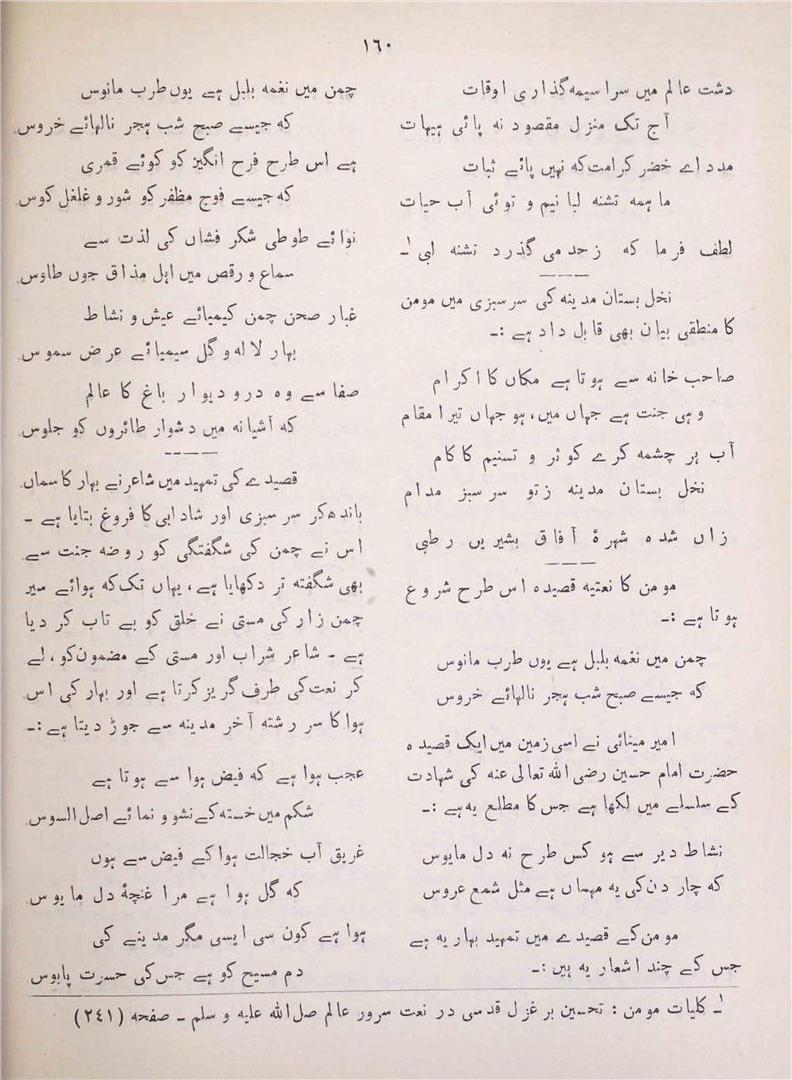 ١٦٠
دشت عالم میں سراسیمہ گذاری اوقات
آج تک منزل مقصود نہ پائی ہیہات
مدد اے خضر کرامت کہ نہیں پائے ثبات
ما ہمہ تشنہ لبا نیم و توئی آب حیات
لطف فرما کہ زحد می گذرد تشنہ لبی ١ـ
نخل بستان مدینہ کی سرسبزی میں مومن
کا منطقی بیان بھی قابل داد ہے :ـ
صاحب خانہ سے ہوتا ہے مکاں کا اکرام
وہی جنت ہے جہاں میں، ہو جہاں تیرا مقام
آب ہر چشمہ کرے کوثر و تسنیم کا کام
نخل بستان مدینہ زتو سرسبز مدام
زاں شدہ شہرۂ آفاق بشیریں رطبی
مومن کا نعتیہ قصیدہ اس طرح شروع
ہوتا ہے :ـ
چمن میں نغمہ بلبل ہے یوں طرب مانوس
کہ جیسے صبح شب ہجر نالہائے خروس
امیر مینائی نے اسی زمین میں ایک قصیدہ
حضرت امام حسین رضی اللہ تعالی عنہ کی شہادت
کے سلسلے میں لکھا ہے جس کا مطلع یہ ہے :ـ
نشاط دیر سے ہو کس طرح نہ دل مایوس
کہ چار دن کی یہ مہماں ہے مثل شمع عروس
مومن کے قصیدے میں تمہید بہاریہ ہے
جس کے چند اشعار یہ ہیں :ـ
چمن میں نغمہ بلبل ہے یوں طرب مانوس
کہ جیسے صبح شب ہجر نالہائے خروس
ہے اس طرح فرح انگیز کو کوئے قمری
کہ جیسے فوج مظفر کو شور و غلغل کوس
نوائے طوطی شکر فشاں کی لذت سے
سماع و رقص میں اہل مذاق جوں طاوس
غبار صحن چمن کیمیائے عیش و نشاط
بہار لالہ و گل سیمیائے عرض سموس
صفا سے وہ در و دیوار باغ کا عالم
کہ آشیانہ میں دشوار طائروں کو جلوس
قصیدے کی تمہید میں شاعر نے بہار کا سماں
باندھ کر سرسبزی اور شادابی کا فروغ بتایا ہے ـ
اس نے چمن کی شگفتگی کو روضہ جنت سے
بھی شگفتہ تر دکھایا ہے، یہاں تک کہ ہوائے سیر
چمن زار کی مستی نے خلق کو بے تاب کر دیا
ہے ـ شاعر شراب اور مستی کے مضمون کو، لے
کر نعت کی طرف گریز کرتا ہے اور بہار کی اس
ہوا کا سر رشتہ آخر مدینہ سے جوڑ دیتا ہے :ـ
عجب ہوا ہے کہ فیض ہوا سے ہوتا ہے
شکم میں خستہ کے نشو و نمائے اصل السوس
غریق آب خجالت ہوا کے فیض سے ہوں
کہ گل ہوا ہے مرا غنچۂ دل مایوس
ہوا ہے کون سی ایسی مگر مدینے کی
دم مسیح کو ہے جس کی حسرت پابوس
١ـ کلیات مومن : تحسین بر غزل قدسی در نعت سرور عالم صل اللہ علیہ و سلم ـ صفحہ (٢٤١)